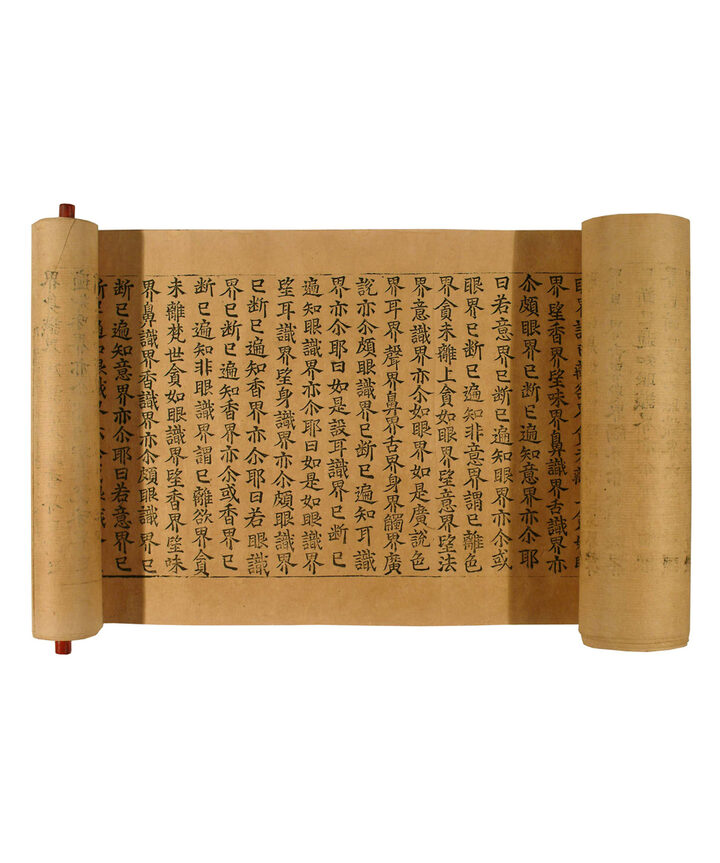 界望香界望味界鼻識界舌識界亦
尒頗眼界已断已遍知意界亦尒耶
曰若意界已断已遍知眼界亦尒或
眼界已断已遍知非意界謂已離色
界貪未離上貪如眼界望意界望法
界意識界亦尒如眼界如是廣說色
界耳界聲界鼻界舌界身界觸界廣
說亦尒頗眼識界已断已遍知耳識
界亦尒耶曰如是設耳識界已断已
遍知眼識界亦尒耶曰如是如眼識界
望耳識界望身識界亦尒頗眼識界
已断已遍知香界亦尒耶曰若眼識
界已断已遍知香界亦尒或香界已
断已遍知非眼識界謂已離欲界貪
未離梵世貪如眼識界望香界望味
界鼻識界香識界亦尒頗眼識界已
断已遍知意界亦尒耶曰若意界已
断已遍知眼識界亦尒